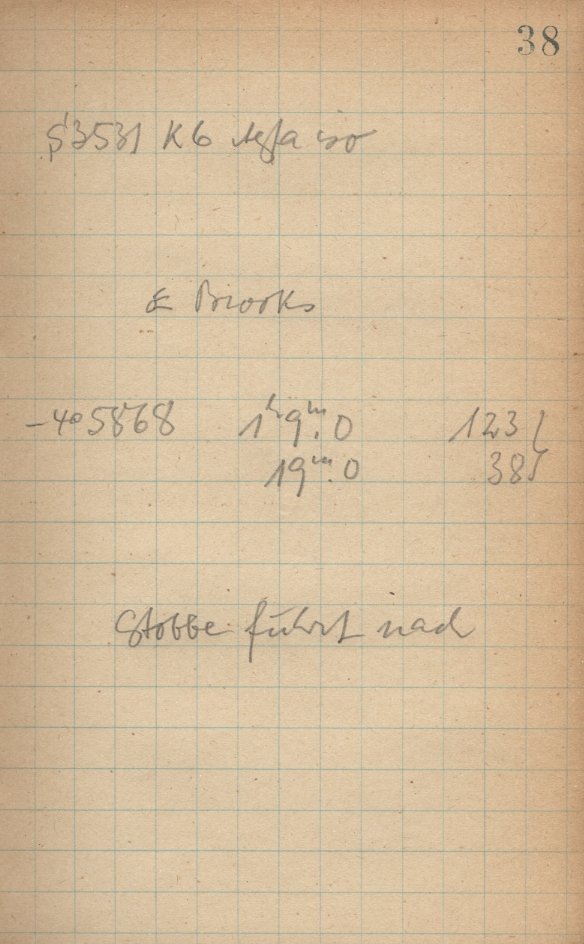 38
S 3531 K6 Agfa iso
E Brooks
-4° 5868 1ʰ 9ᵐ.0 123 }
19ᵐ.0 38 }
Stobbe führt nach